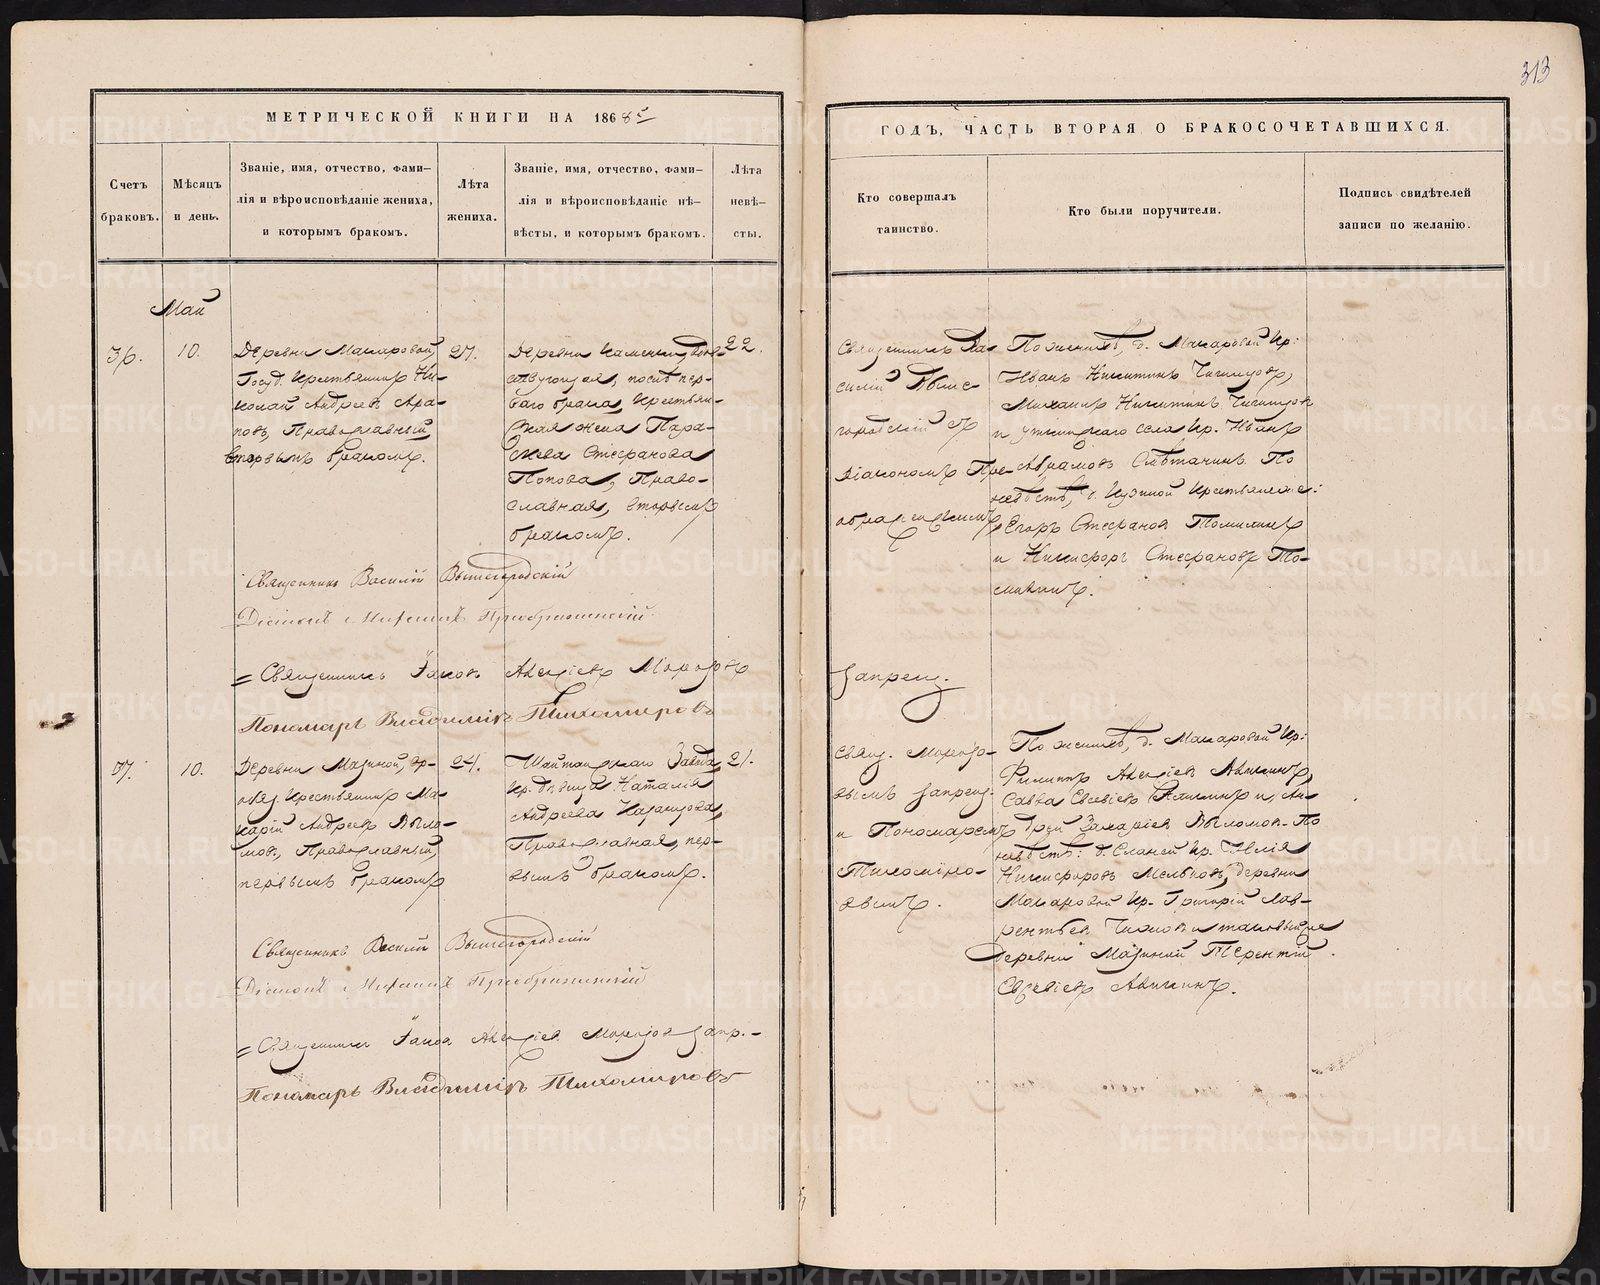 313
МЕТРИЧЕСКОЙ КНИГИ НА 1868й
ГОДЪ, ЧАСТЬ ВТОРАЯ О БРАКОСОЧЕТАВШИХСЯ.
Счетъ
браковъ.
Мѣсяцъ
и день.
Званіе, имя, отчество, фами-
лія и вѣроисповѣданіе жениха,
и которымъ бракомъ.
Лѣта
жениха.
Званіе, имя, отчество, фами-
лія и вѣроисповѣданіе нѣ-
вѣсты, и которымъ бракомъ.
Лѣта
невѣ-
сты.
Кто совершалъ
таинство.
Кто были поручители.
Подпись свидѣтелей
записи по желанію.
Май
36.
10.
Деревни Макаровой,
Госуд. Крестьянинъ Ни-
колай Андреевъ Ара-
повъ, Православный,
вторымъ бракомъ.
27.
Деревни Каменки,
послѣ пер-
ваго брака, Крестьян-
ская жена Пара-
скева Стефанова
Попова, Право-
славная, вторымъ
бракомъ.
22.
Священникъ Ва-
силій Выше-
городскій съ
Діакономъ Пре-
ображенскимъ
По женихѣ, д. Макаровой Кр:
Иванъ Никитинъ
Михаилъ Никитинъ
и уткинскаго села Кр. Иванъ
Аврамовъ Смѣтанинъ. По
невѣстѣ, д. Кузиной Крестьяне:
Егоръ Стефановъ Томилинъ
и Никифоръ Стефановъ То-
милинъ.
Священникъ Василій Вышегородскій
Діаконъ Преображенскій
Священникъ Іаковъ Алексѣевъ Морозовъ
Пономарь Владимiръ Тихомировъ
запрещ.
37.
10.
Деревни Мазиной, вр-
обяз. Крестьянинъ Ма-
карій Андреевъ Выло-
мовъ, Православный,
первымъ бракомъ
24.
Шайтанскаго Завода,
Кр. дѣвица Наталія
Андреева
Православная, пер-
вымъ бракомъ.
21.
Свящ. Морозо-
вымъ запрещ.
и Пономаремъ
Тихоміро-
вымъ.
По женихѣ, д. Макаровой Кр:
Филиппъ Алексѣевъ
Савва Евсевіевъ и, Ан-
дрей Захаріевъ Выломовъ. По
невѣстѣ: д. Слакей Кр. Илія
Никифоровъ Мельковъ, деревни
Макаровой Кр. Григорій Лав-
рентьевъ и таковой же
деревни Мазиной Терентій
Евсевіевъ
Священникъ Василій Вышегородскій
Діаконъ Преображенскій
Священникъ Іаковъ Алексѣевъ Морозовъ запр.
Пономарь Владимiръ Тихомировъ
METRIKI.GASO-URAL.RU